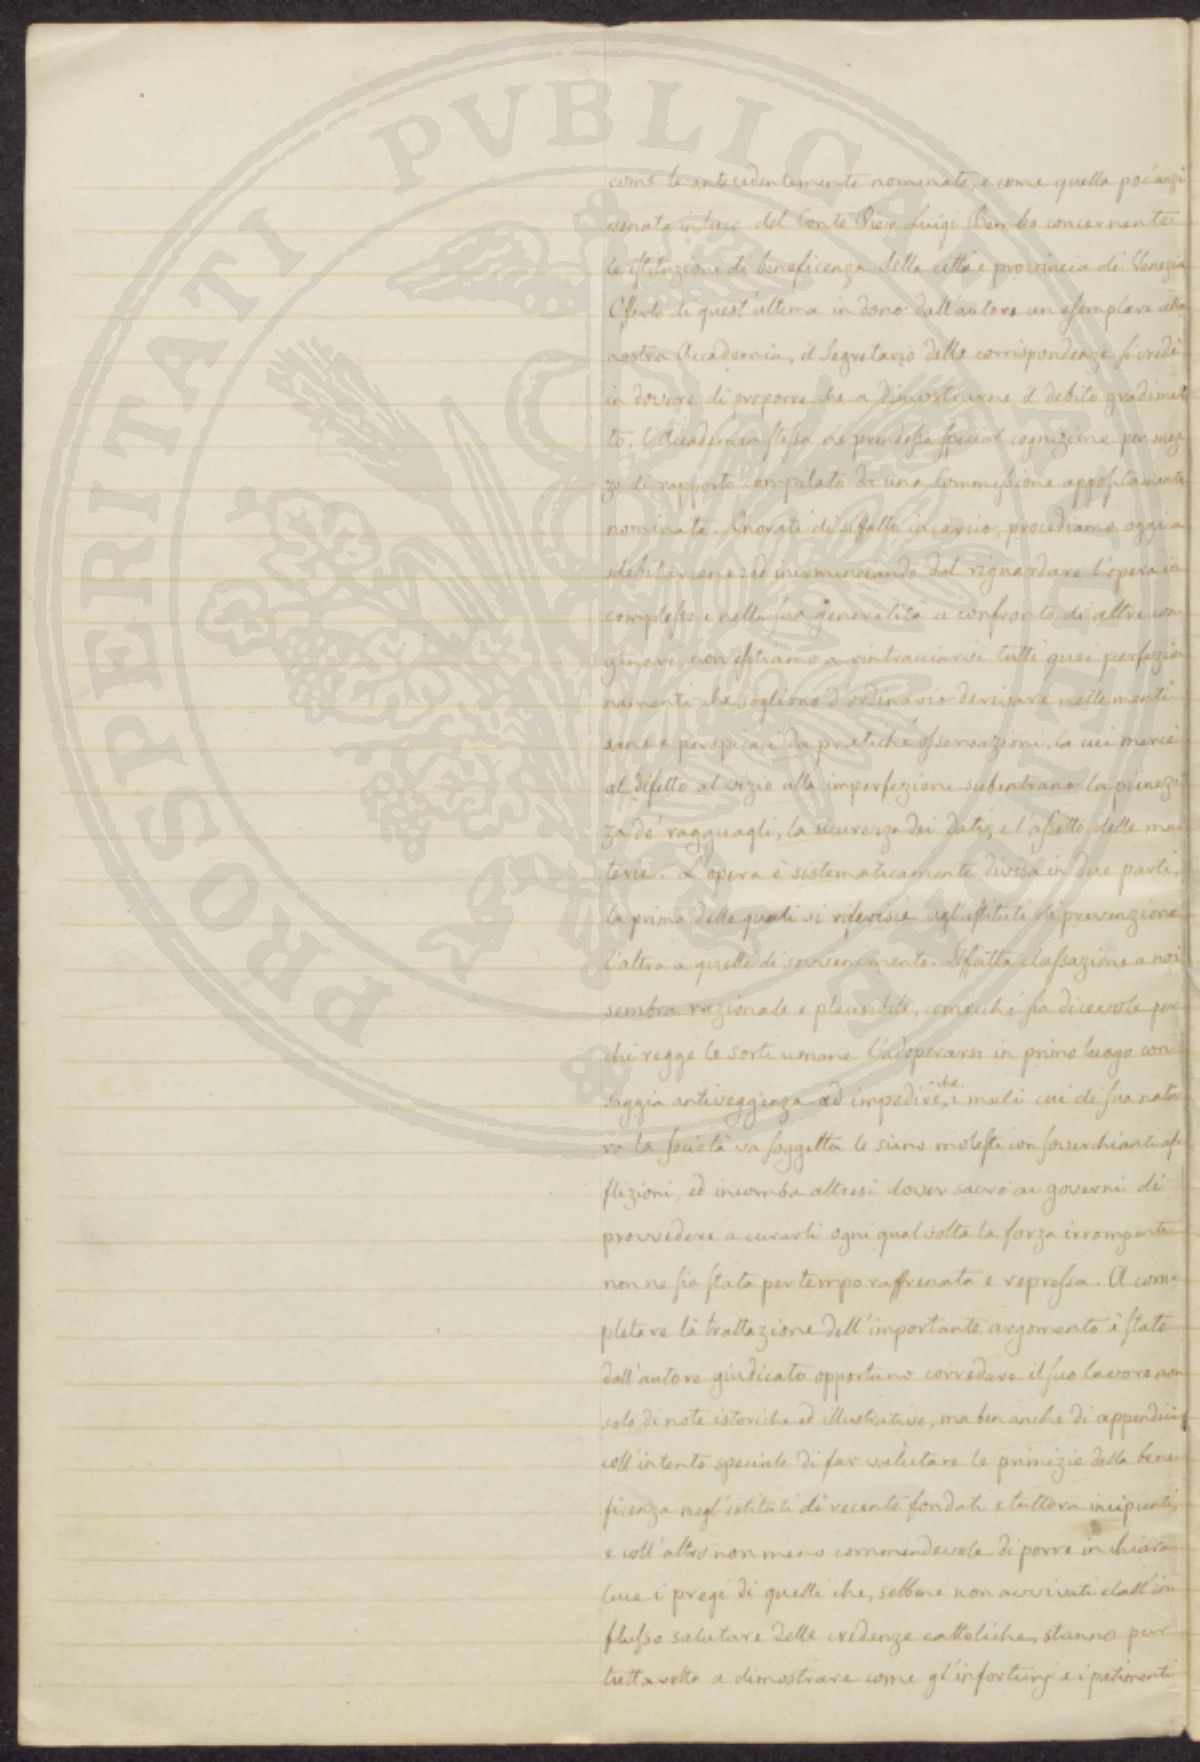 PROSPERITATI PVBLICAE
come le antecedentemente nominate, e come quella poc'anzi
venuta in luce del Conte Pier Luigi Bembo concernente
le istituzioni di beneficenza della città e provincia di Venezia
Offerto di quest'ultima in dono dall'autore un esemplare alla
nostra Accademia, il Segretario delle corrispondenze si credè
in dovere di proporre che a dimostrarne il debito gradimen
to, l'Accademia stessa ne prendesse special cognizione per mez
zo di rapporto compilato da una Commessione appositamente
nominata. Onorati di siffatto incarico, procediamo oggi a
sdebitarcene: ed incominciando dal riguardare l'opera in
complesso e nella sua generalità a confronto di altre con
generi, non esitiamo a rintracciarvi tutti quei perfezio
namenti che sogliono d'ordinario derivare nelle menti
sane e perspicaci da pratiche osservazioni, la cui mercè
al difetto al vizio alla imperfezione subentrano la pienez
za de' ragguagli, la sicurezza dei dati, e l'assetto delle ma
terie. L'opera è sistematicamente divisa in due parti,
la prima delle quali si riferisce agl'istituti di prevenzione
l'altra a quelli di sovvenimento. Siffatta classazione a noi
sembra razionale e plausibile, comecchè sia dicevole per
chi regge le sorti umane l'adoperarsi in primo luogo con
saggia antiveggenza ad impedire, che i mali cui di sua natu
ra la società va soggetta le siano molesti con soverchianti af
flizioni, ed incomba altresì dover sacro ai governi di
provvedere a curarli ogni qualvolta la forza irrompente
non ne sia stata per tempo raffrenata e repressa. A com
pletare la trattazione dell'importante argomento è stato
dall'autore giudicato opportuno corredare il suo lavoro non
solo di note istoriche ed illustrative, ma ben anche di appendici
coll'intento speciale di far valutare le primizie della bene
ficenza negl'istituti di recente fondati e tuttora incipienti,
e coll'altro non meno commendevole di porre in chiara
luce i pregi di quelli che, sebbene non avvivati dall'in
flusso salutare delle credenze cattoliche, stanno pur
tuttavolta a dimostrare come gl'infortunj e i patimenti